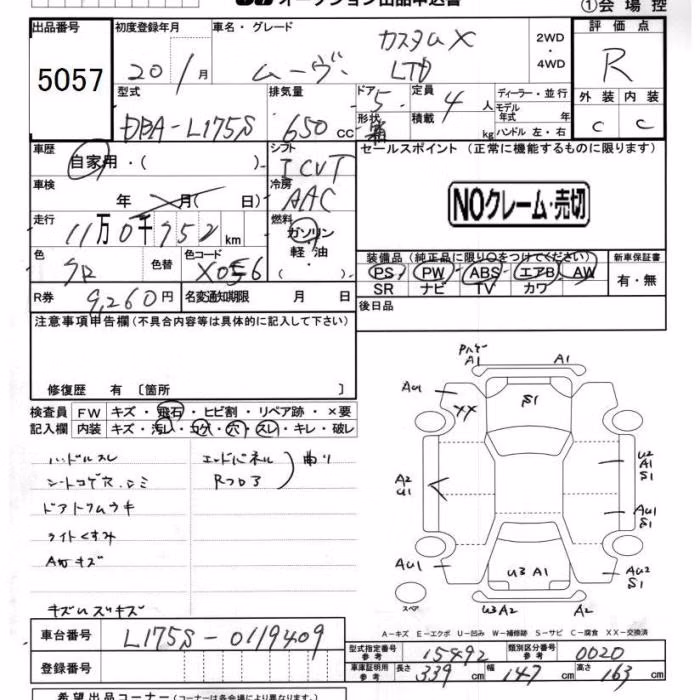 オークション出品申込書
①会場控
出品番号
5057
初度登録年月
20 / 1月
車名・グレード
ムーヴ カスタムX LTD
2WD
・
4WD
評価点
R
外装 内装
C C
型式
DBA-L175S
排気量
650 cc
ドア 5
形状 箱
定員 4 人
積載 kg
ディーラー・並行
モデル年式 年
ハンドル 左・右
車歴
自家用・( )
シフト
ICVT
車検
年 月( 日)
冷房
AAC
走行
11万0千952 km
燃料
ガソリン
軽油
・( )
色
色替
色コード
X056
R券
9,260円
名変通知期限 月 日
セールスポイント (正常に機能するものに限ります)
NOクレーム・売切
装備品 (純正品に限り○をつけてください)
PS PW ABS エアB AW
SR ナビ TV カワ
新車保証書
有・無
後日品
注意事項申告欄(不具合内容等は具体的に記入して下さい)
修復歴 有 〔箇所 〕
検査員
記入欄
FW キズ・飛石・ヒビ割・リペア跡・×要
内装 キズ・汚レ・コゲ・穴・スレ・キレ・破レ
ハンドルスレ
シートコゲ穴、シミ
ドアトリムウキ
ライトくすみ
AWキズ
キズハズキズ
エンドパネル
Rフロア
曲リ
A1
A1
AU1
XX
S1
A2
U1
U2
A1
S1
AU1
S1
AU1
U3 A1
AU2
S1
スペア
U3A2
A2
A-キズ E-エクボ U-凹み W-補修跡 S-サビ C-腐食 XX-交換済
車台番号
L175S-0119409
登録番号
型式指定番号
参考
15492
類別区分番号
参考
0020
車庫証明用
参考
長さ 339 cm
幅 147 cm
高さ 163 cm
希望出品コーナー(コーナーは各会場により異なります。)